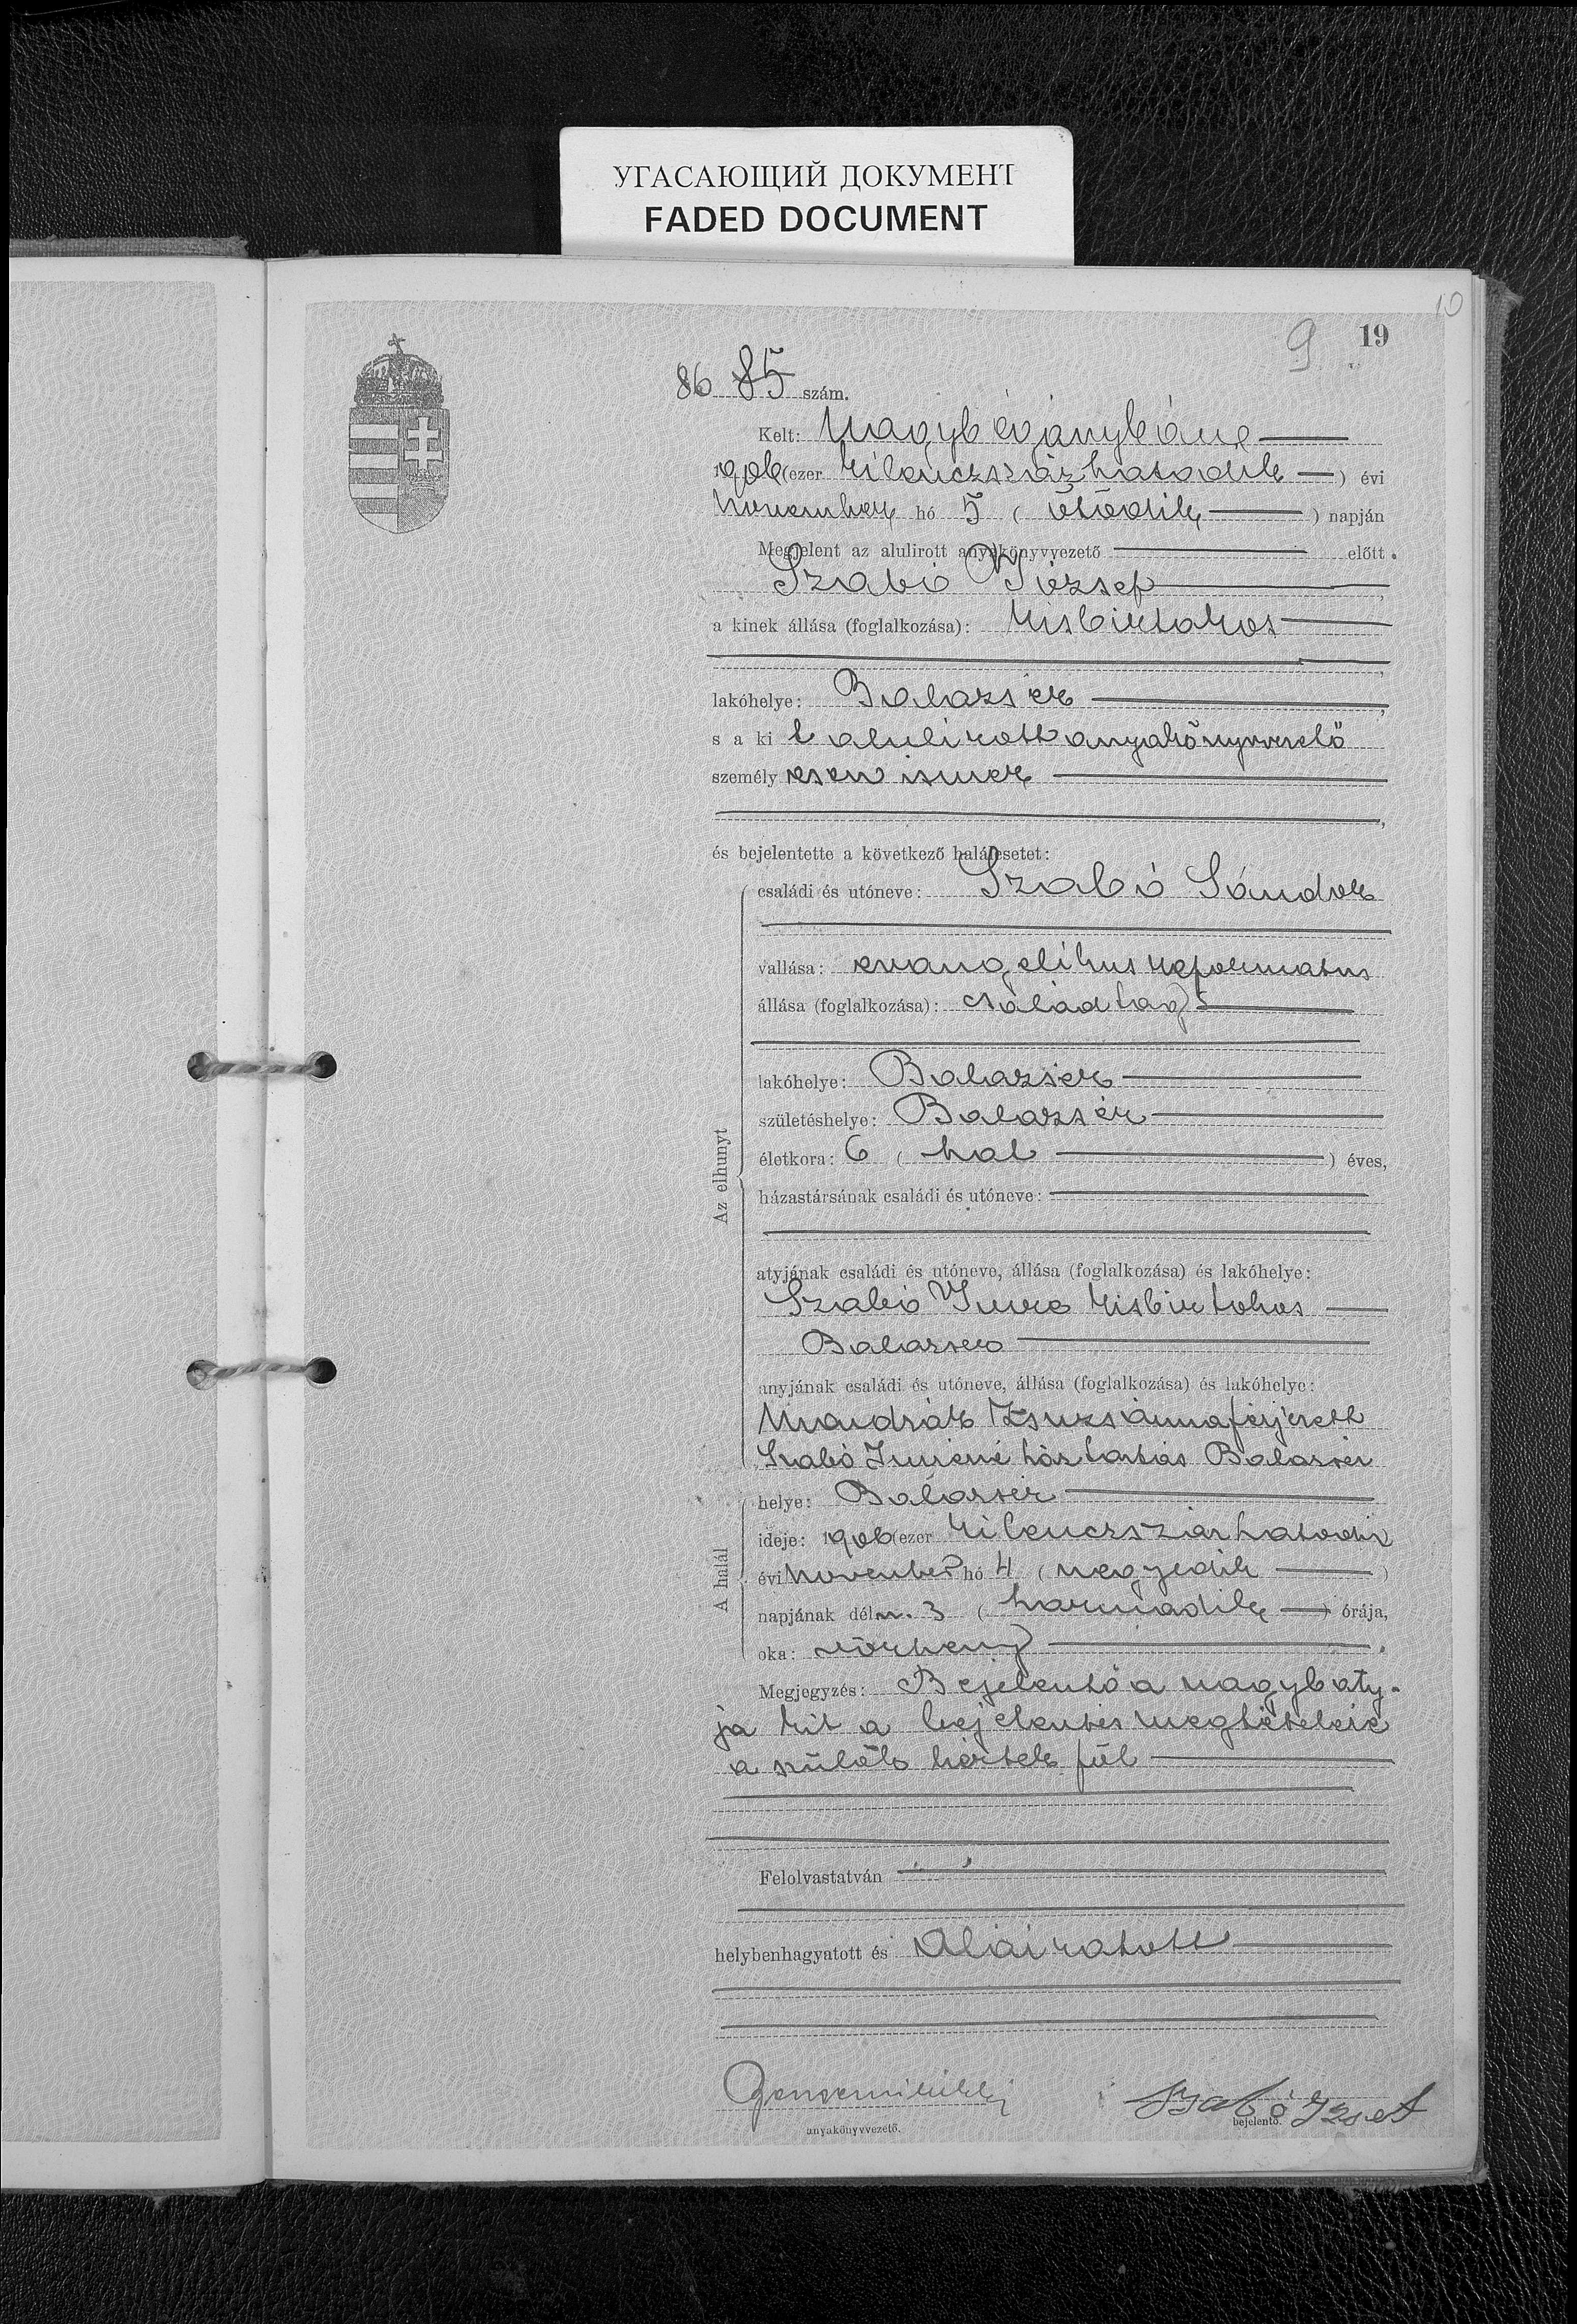 УГАСАЮЩИЙ ДОКУМЕНТ
FADED DOCUMENT
10
9 19
86 85 szám.
Kelt: Nagybégánybán
1906 (ezer kilenczszázhatodik) évi
november hó 5 (ötödik) napján
Megjelent az alulirott anyakönyvvezető előtt
Szabó József
a kinek állása (foglalkozása): kisbirtokos
lakóhelye: Balazsér
s a kit alulirott anyakönyvvezető
személyesen ismer
és bejelentette a következő halálesetet:
Az elhunyt
családi és utóneve: Szabó Sándor
vallása: evangelikus reformatus
állása (foglalkozása): családtag
lakóhelye: Balazsér
születéshelye: Balazsér
életkora: 6 (hat) éves,
házastársának családi és utóneve:
atyjának családi és utóneve, állása (foglalkozása) és lakóhelye:
Szabó Imre kisbirtokos
Balazsér
anyjának családi és utóneve, állása (foglalkozása) és lakóhelye:
Mandrák Zsuzsánna férjezett
Szabó Imréné háztartás Balazsér
A halál
helye: Balazsér
ideje: 1906 (ezer kilenczszázhatodik
évi november hó 4 (negyedik)
napjának dél u. 3 (harmadik) órája,
oka: vörheny
Megjegyzés: Bejelentő a nagybaty-
ja kit a bejelentés megtételére
a szülők kértek föl
Felolvastatván
helybenhagyatott és aláiratott
Szabó Jzsef
anyakönyvvezető.
bejelentő.